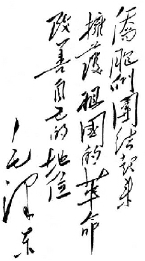 侨胞们团结起来
拥护祖国的革命
改善自己的地位
毛泽东